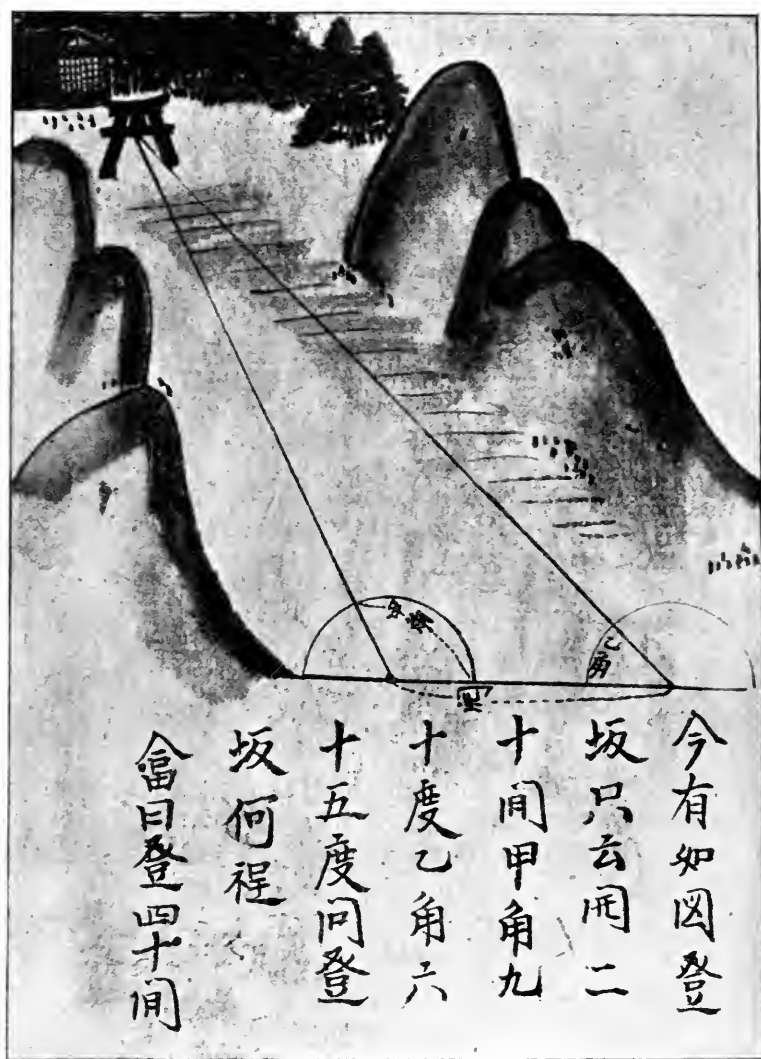 乙角
今有如図登
坂只云開二
十間甲角九
十度乙角六
十五度問登
坂何程
畣曰登四十間